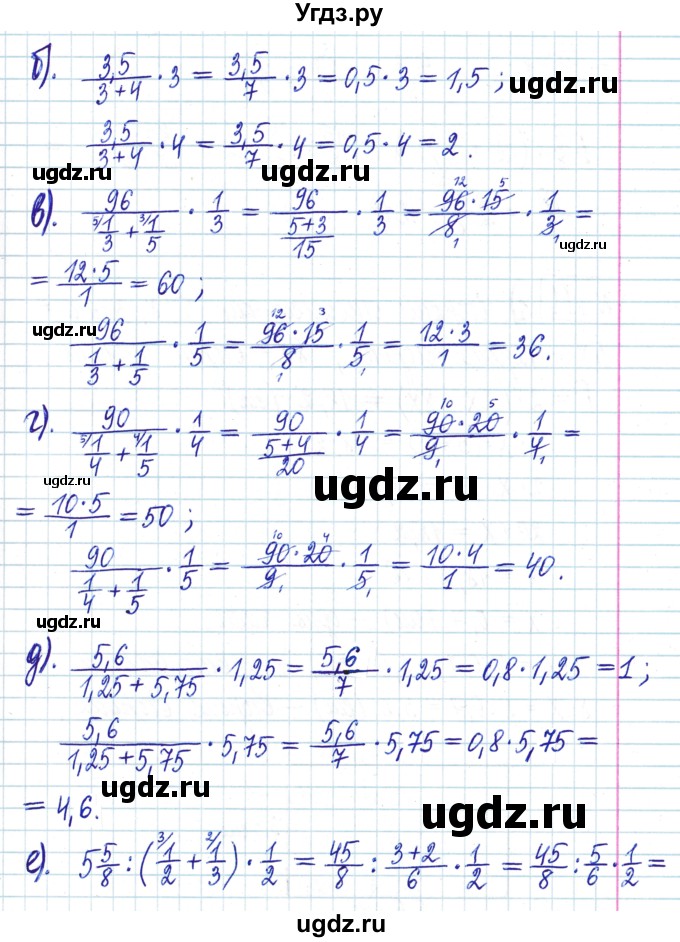 Угдз.ру
б). 3,5/(3+4) · 3 = 3,5/7 · 3 = 0,5 · 3 = 1,5 ;
ugdz.ru
3,5/(3+4) · 4 = 3,5/7 · 4 = 0,5 · 4 = 2.
ugdz.ru
ugdz.ru
в). 96/(5/ 1/3 + 3/ 1/5) · 1/3 = 96/((5+3)/15) · 1/3 = (96 12 · 15 5)/(8 1) · 1/(3 1) =
= (12·5)/1 = 60 ;
ugdz.ru
ugdz.ru
96/(1/3 + 1/5) · 1/5 = (96 12 · 15 3)/(8 1) · 1/(5 1) = (12·3)/1 = 36.
г). 90/(5/ 1/4 + 4/ 1/5) · 1/4 = 90/((5+4)/20) · 1/4 = (90 10 · 20 5)/(9 1) · 1/(4 1) =
ugdz.ru
ugdz.ru
= (10·5)/1 = 50 ;
90/(1/4 + 1/5) · 1/5 = (90 10 · 20 4)/(9 1) · 1/(5 1) = (10·4)/1 = 40.
ugdz.ru
ugdz.ru
д). 5,6/(1,25+5,75) · 1,25 = 5,6/7 · 1,25 = 0,8 · 1,25 = 1 ;
5,6/(1,25+5,75) · 5,75 = 5,6/7 · 5,75 = 0,8 · 5,75 =
ugdz.ru
= 4,6.
ugdz.ru
е). 5 5/8 : (3/ 1/2 + 2/ 1/3) · 1/2 = 45/8 : (3+2)/6 · 1/2 = 45/8 : 5/6 · 1/2 =
ugdz.ru